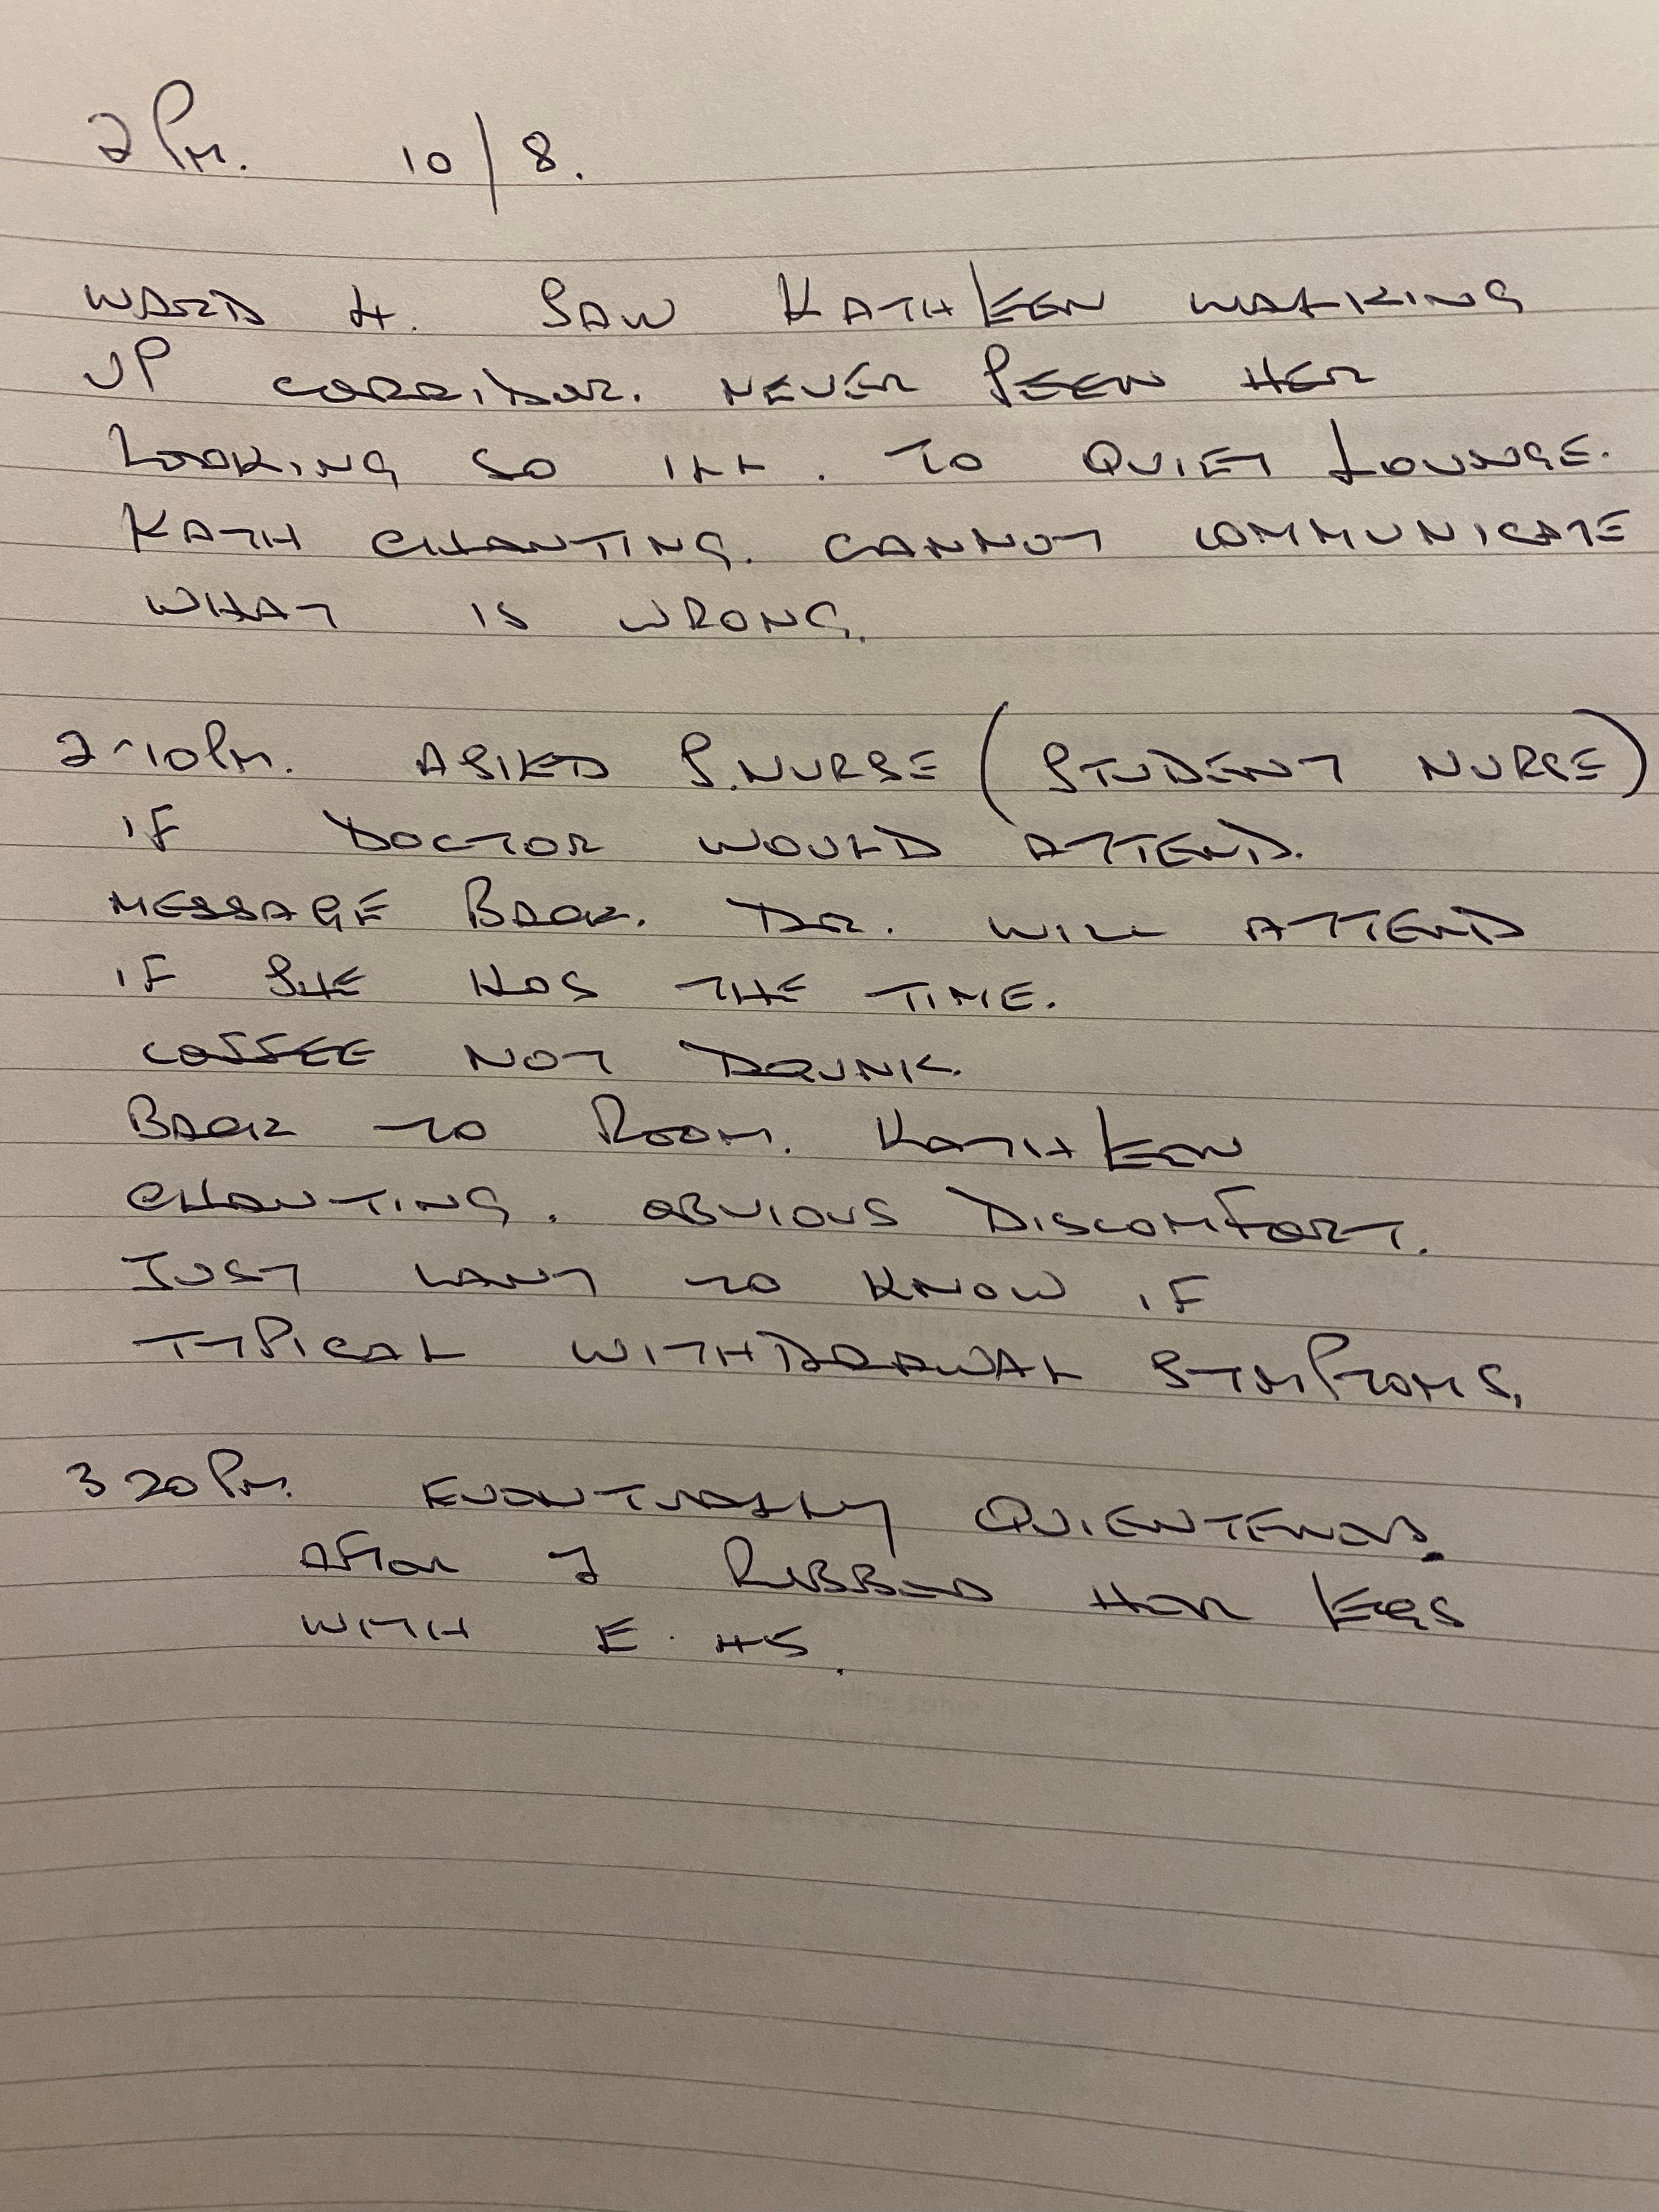 2 PM. 10/8.
WARD 4. SAW KATHLEEN WALKING
UP CORRIDOR. NEVER SEEN HER
LOOKING SO ILL. TO QUIET LOUNGE.
KATH CHANTING. CANNOT COMMUNICATE
WHAT IS WRONG.
2-10PM. ASKED S.NURSE (STUDENT NURSE)
IF DOCTOR WOULD ATTEND.
MESSAGE BACK. DR. WILL ATTEND
IF SHE HAS THE TIME.
COFFEE NOT DRUNK.
BACK TO ROOM. KATHLEEN
CHANTING. OBVIOUS DISCOMFORT.
JUST WANT TO KNOW IF
TYPICAL WITHDRAWAL SYMPTOMS.
3 20PM. EVENTUALLY QUIENTENED.
AFTER I RUBBED HER LEGS
WITH E.45.